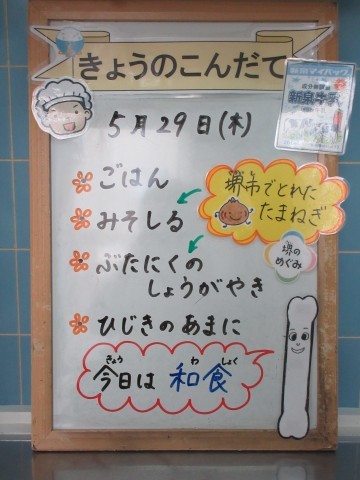 きょうのこんだて
5月29日(木)
ごはん
みそしる
堺市でとれた
たまねぎ
堺の
めぐみ
ぶたにくの
しょうがやき
ひじきのあまに
今日は 和食
きょう わ しょく